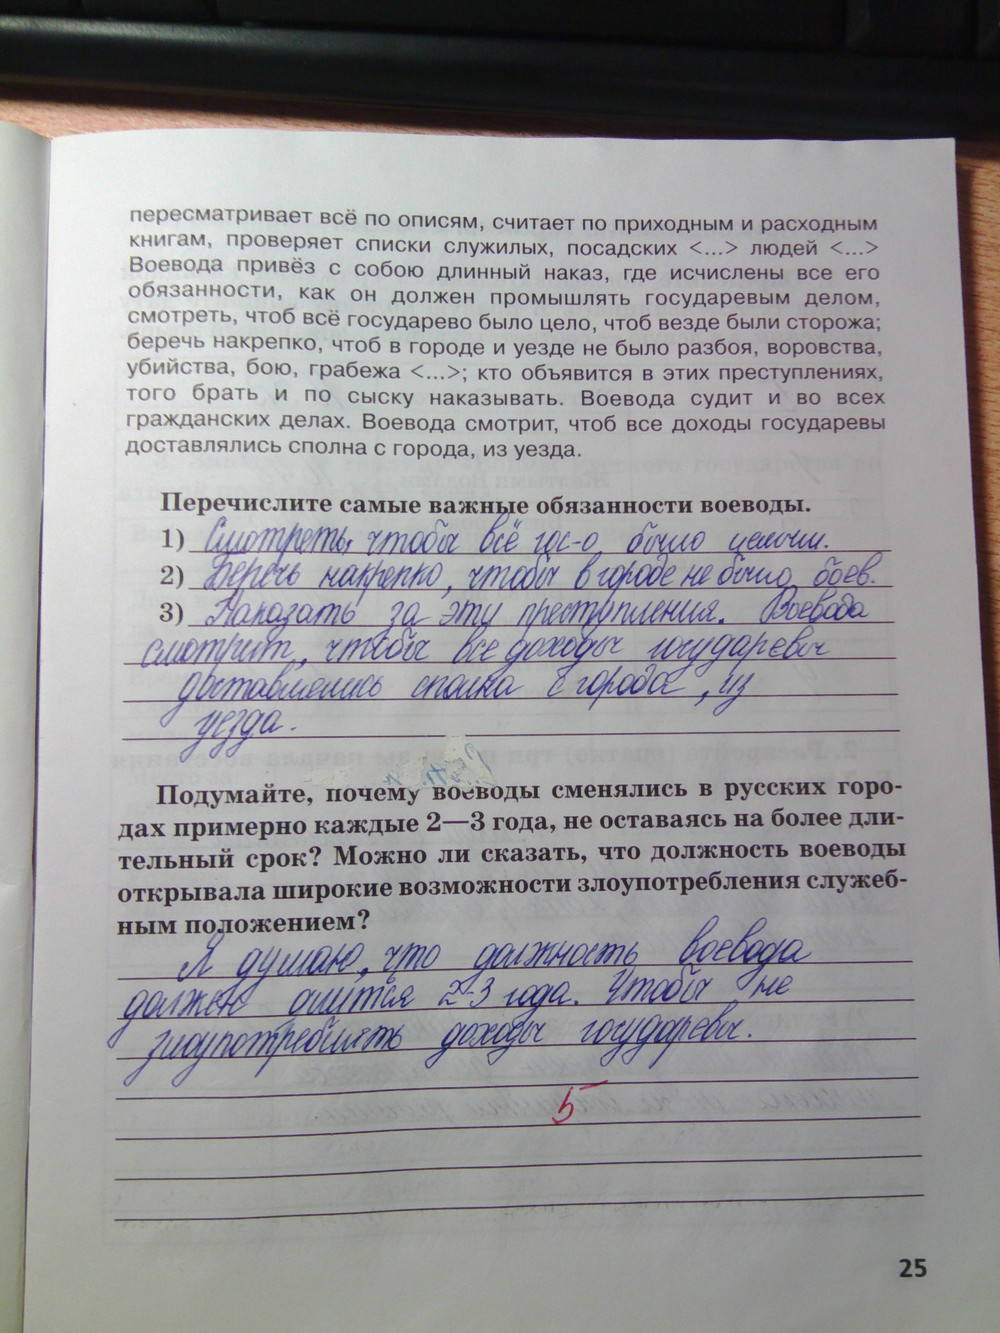 пересматривает всё по описям, считает по приходным и расходным
книгам, проверяет списки служилых, посадских <...> людей <...>
Воевода привёз с собою длинный наказ, где исчислены все его
обязанности, как он должен промышлять государевым делом,
смотреть, чтоб всё государево было цело, чтоб везде были сторожа;
беречь накрепко, чтоб в городе и уезде не было разбоя, воровства,
убийства, бою, грабежа <...>; кто объявится в этих преступлениях,
того брать и по сыску наказывать. Воевода судит и во всех
гражданских делах. Воевода смотрит, чтоб все доходы государевы
доставлялись сполна с города, из уезда.
Перечислите самые важные обязанности воеводы.
1) Смотреть, чтобы всё гос-о было целым.
2) Беречь накрепко, чтобы в городе не было боев.
3) Наказать за эту преступления. Воевода
смотрит, чтобы все доходы государевы
доставлялись сполна с города, из
уезда.
Подумайте, почему воеводы сменялись в русских горо-
дах примерно каждые 2—3 года, не оставаясь на более дли-
тельный срок? Можно ли сказать, что должность воеводы
открывала широкие возможности злоупотребления служеб-
ным положением?
Я думаю, что должность воевода
должен 2-3 года. Чтобы не
злоупотреблять доходы государевы.
5
25